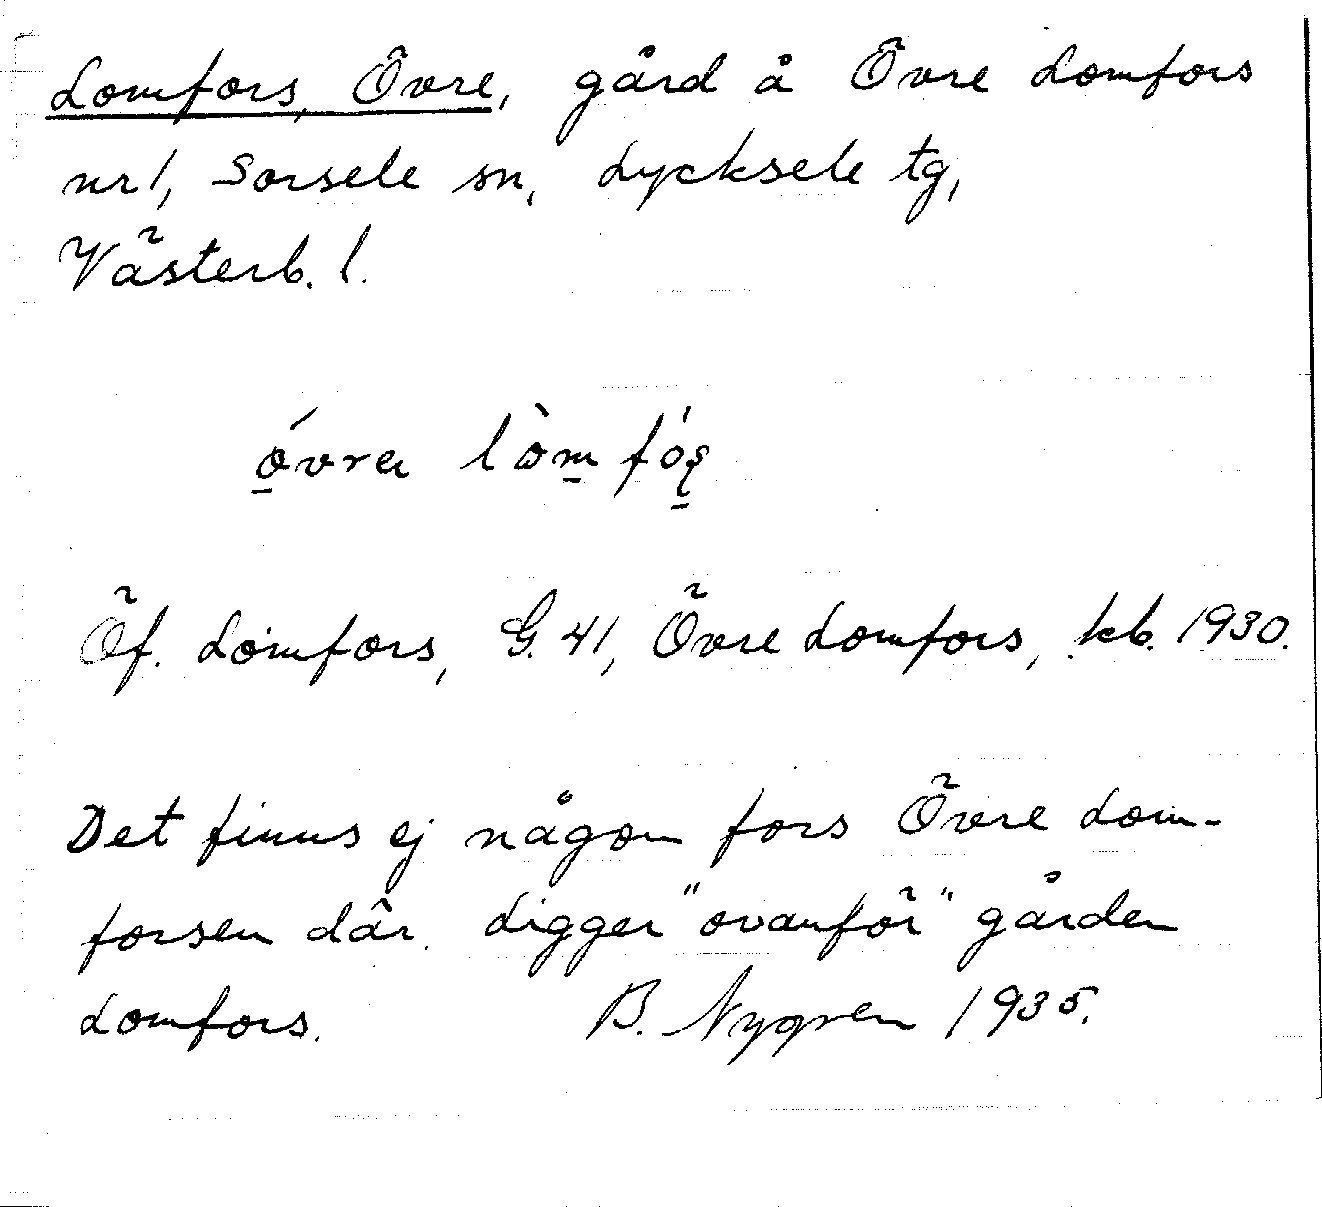 Lomfors, Övre, gård å Övre Lomfors
nr 1, Sorsele sn, Lycksele tg,
Västerb. l.
övra lòmfós̩
Öf. Lomfors, G. 41, Övre Lomfors, kb. 1930.
Det finns ej någon fors Övre Lom-
forsen där. Ligger "ovanför" gården
Lomfors. B. Nygren 1935.